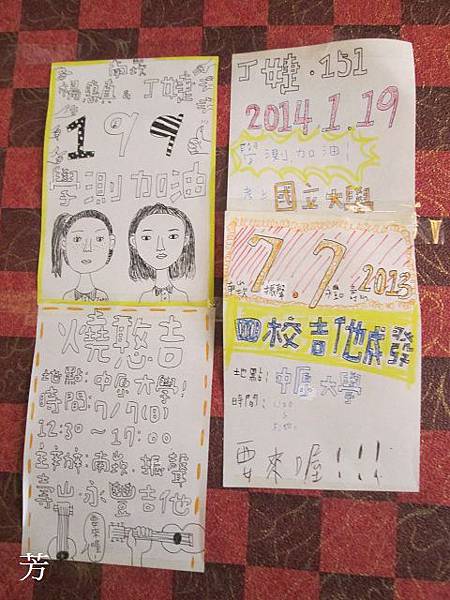 丁婕.151
2014.1.19
學測加油!
國立大學
& 丁婕
197
學測加油
7.7 2013
振聲
四校吉他成發
地點:中原大學
時間:
要來喔!!!
燒憨吉
地點:中原大學!
時間:7/7(日)
12:30~17:00
主辦:南崁.振聲
壽山.永豐吉他
芳